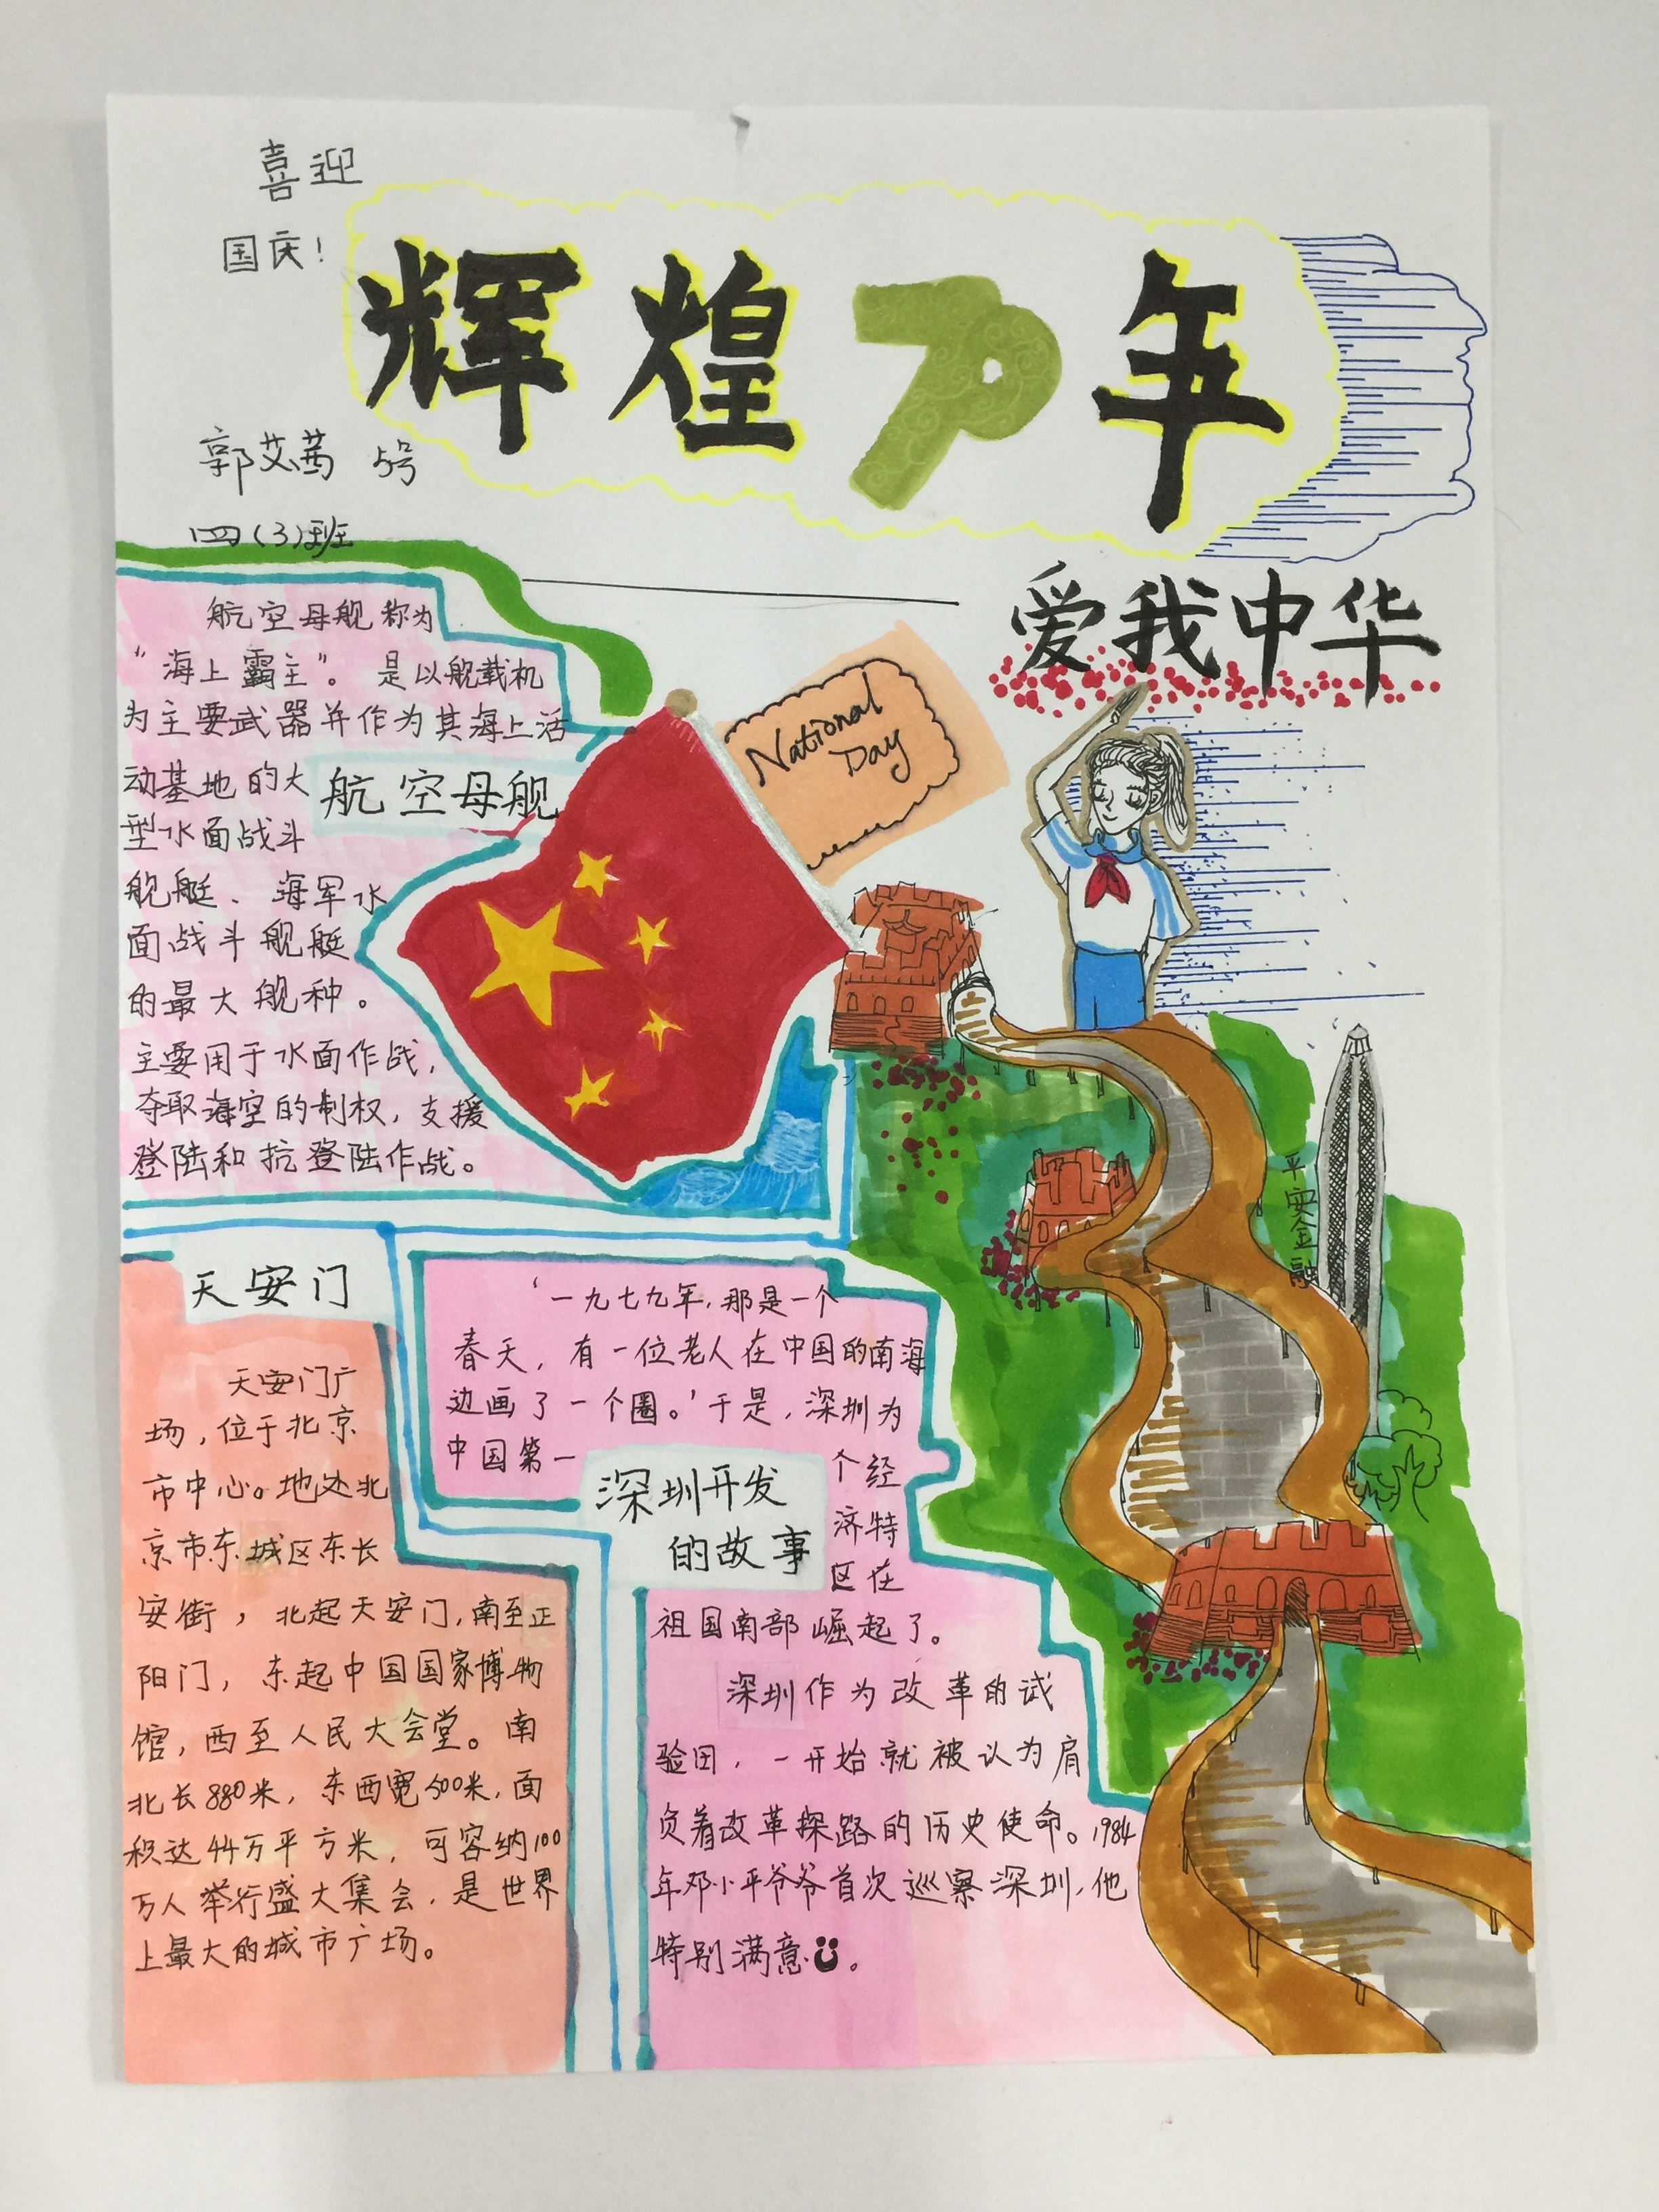 喜迎
国庆！
辉煌70年
郭艾茜 5号
四（3）班
爱我中华
National
Day
航空母舰称为
“海上霸主”。是以舰载机
为主要武器并作为其海上活
动基地的大
型水面战斗
舰艇、海军水
面战斗舰艇
的最大舰种。
主要用于水面作战，
夺取海空的制权，支援
登陆和抗登陆作战。
航空母舰
平安金融
天安门
天安门广
场，位于北京
市中心。地处北
京市东城区东长
安街，北起天安门，南至正
阳门，东起中国国家博物
馆，西至人民大会堂。南
北长880米，东西宽500米，面
积达44万平方米，可容纳100
万人举行盛大集会，是世界
上最大的城市广场。
‘一九七九年，那是一个
春天，有一位老人在中国的南海
边画了一个圈。’于是，深圳为
中国第一
个经
济特
区在
祖国南部崛起了。
深圳开发
的故事
深圳作为改革的试
验田，一开始就被认为肩
负着改革探路的历史使命。1984
年邓小平爷爷首次巡察深圳，他
特别满意。